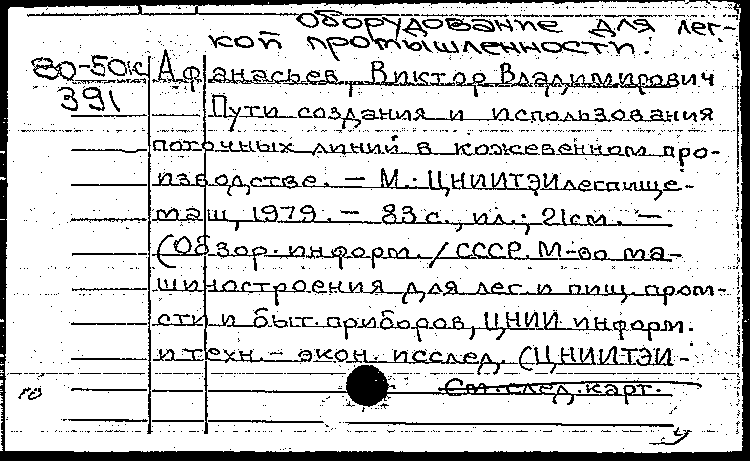 Оборудование для лег-
кой промышленности.
80-50к Афанасьев, Виктор Владимирович
391 Пути создания и использования
поточных линий в кожевенном про-
изводстве. — М.: ЦНИИТЭИлегпище-
маш, 1979. — 83 с., ил.; 21 см. —
(Обзор. информ. / СССР. М-во ма-
шиностроения для лег. и пищ. пром-
сти и быт. приборов, ЦНИИ информ.
и техн.-экон. исслед. (ЦНИИТЭИ-
См. след. карт.